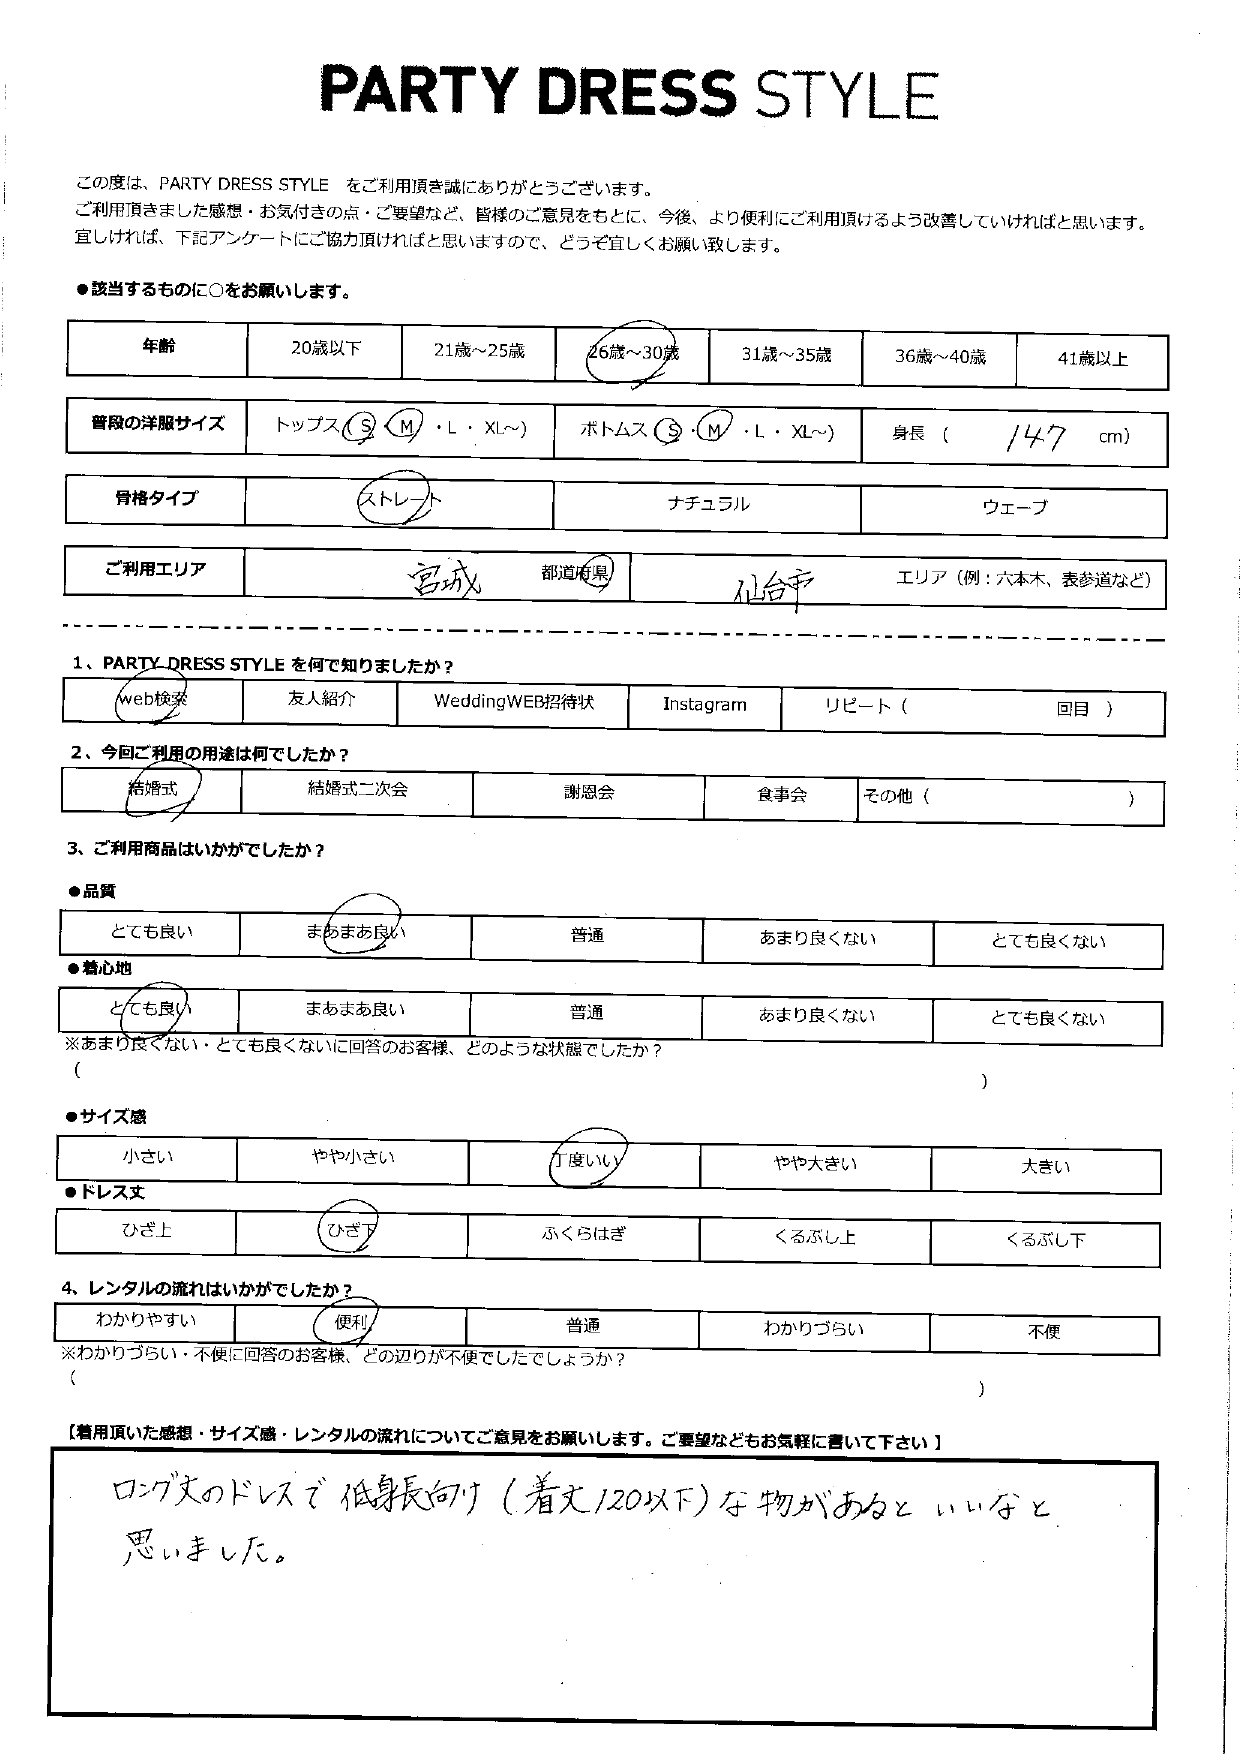 PARTY DRESS STYLE
この度は、PARTY DRESS STYLE をご利用頂き誠にありがとうございます。
ご利用頂きました感想・お気付きの点・ご要望など、皆様のご意見をもとに、今後、より便利にご利用頂けるよう改善していければと思います。
宜しければ、下記アンケートにご協力頂ければと思いますので、どうぞ宜しくお願い致します。
●該当するものに○をお願いします。
年齢 20歳以下 21歳～25歳 26歳～30歳 31歳～35歳 36歳～40歳 41歳以上
普段の洋服サイズ トップス（S・M・L・XL～) ボトムス（S・M・L・XL～) 身長（ 147 cm）
骨格タイプ ストレート ナチュラル ウェーブ
ご利用エリア 宮城 都道府県 仙台市 エリア（例：六本木、表参道など）
1、PARTY DRESS STYLE を何で知りましたか？
web検索 友人紹介 WeddingWEB招待状 Instagram リピート（ 回目 ）
2、今回ご利用の用途は何でしたか？
結婚式 結婚式二次会 謝恩会 食事会 その他（ ）
3、ご利用商品はいかがでしたか？
●品質
とても良い まあまあ良い 普通 あまり良くない とても良くない
●着心地
とても良い まあまあ良い 普通 あまり良くない とても良くない
※あまり良くない・とても良くないに回答のお客様、どのような状態でしたか？
（ ）
●サイズ感
小さい やや小さい 丁度いい やや大きい 大きい
●ドレス丈
ひざ上 ひざ下 ふくらはぎ くるぶし上 くるぶし下
4、レンタルの流れはいかがでしたか？
わかりやすい 便利 普通 わかりづらい 不便
※わかりづらい・不便に回答のお客様、どの辺りが不便でしたでしょうか？
（ ）
【着用頂いた感想・サイズ感・レンタルの流れについてご意見をお願いします。ご要望などもお気軽に書いて下さい 】
ロング丈のドレスで 低身長向け（着丈120以下）な物があるといいなと
思いました。